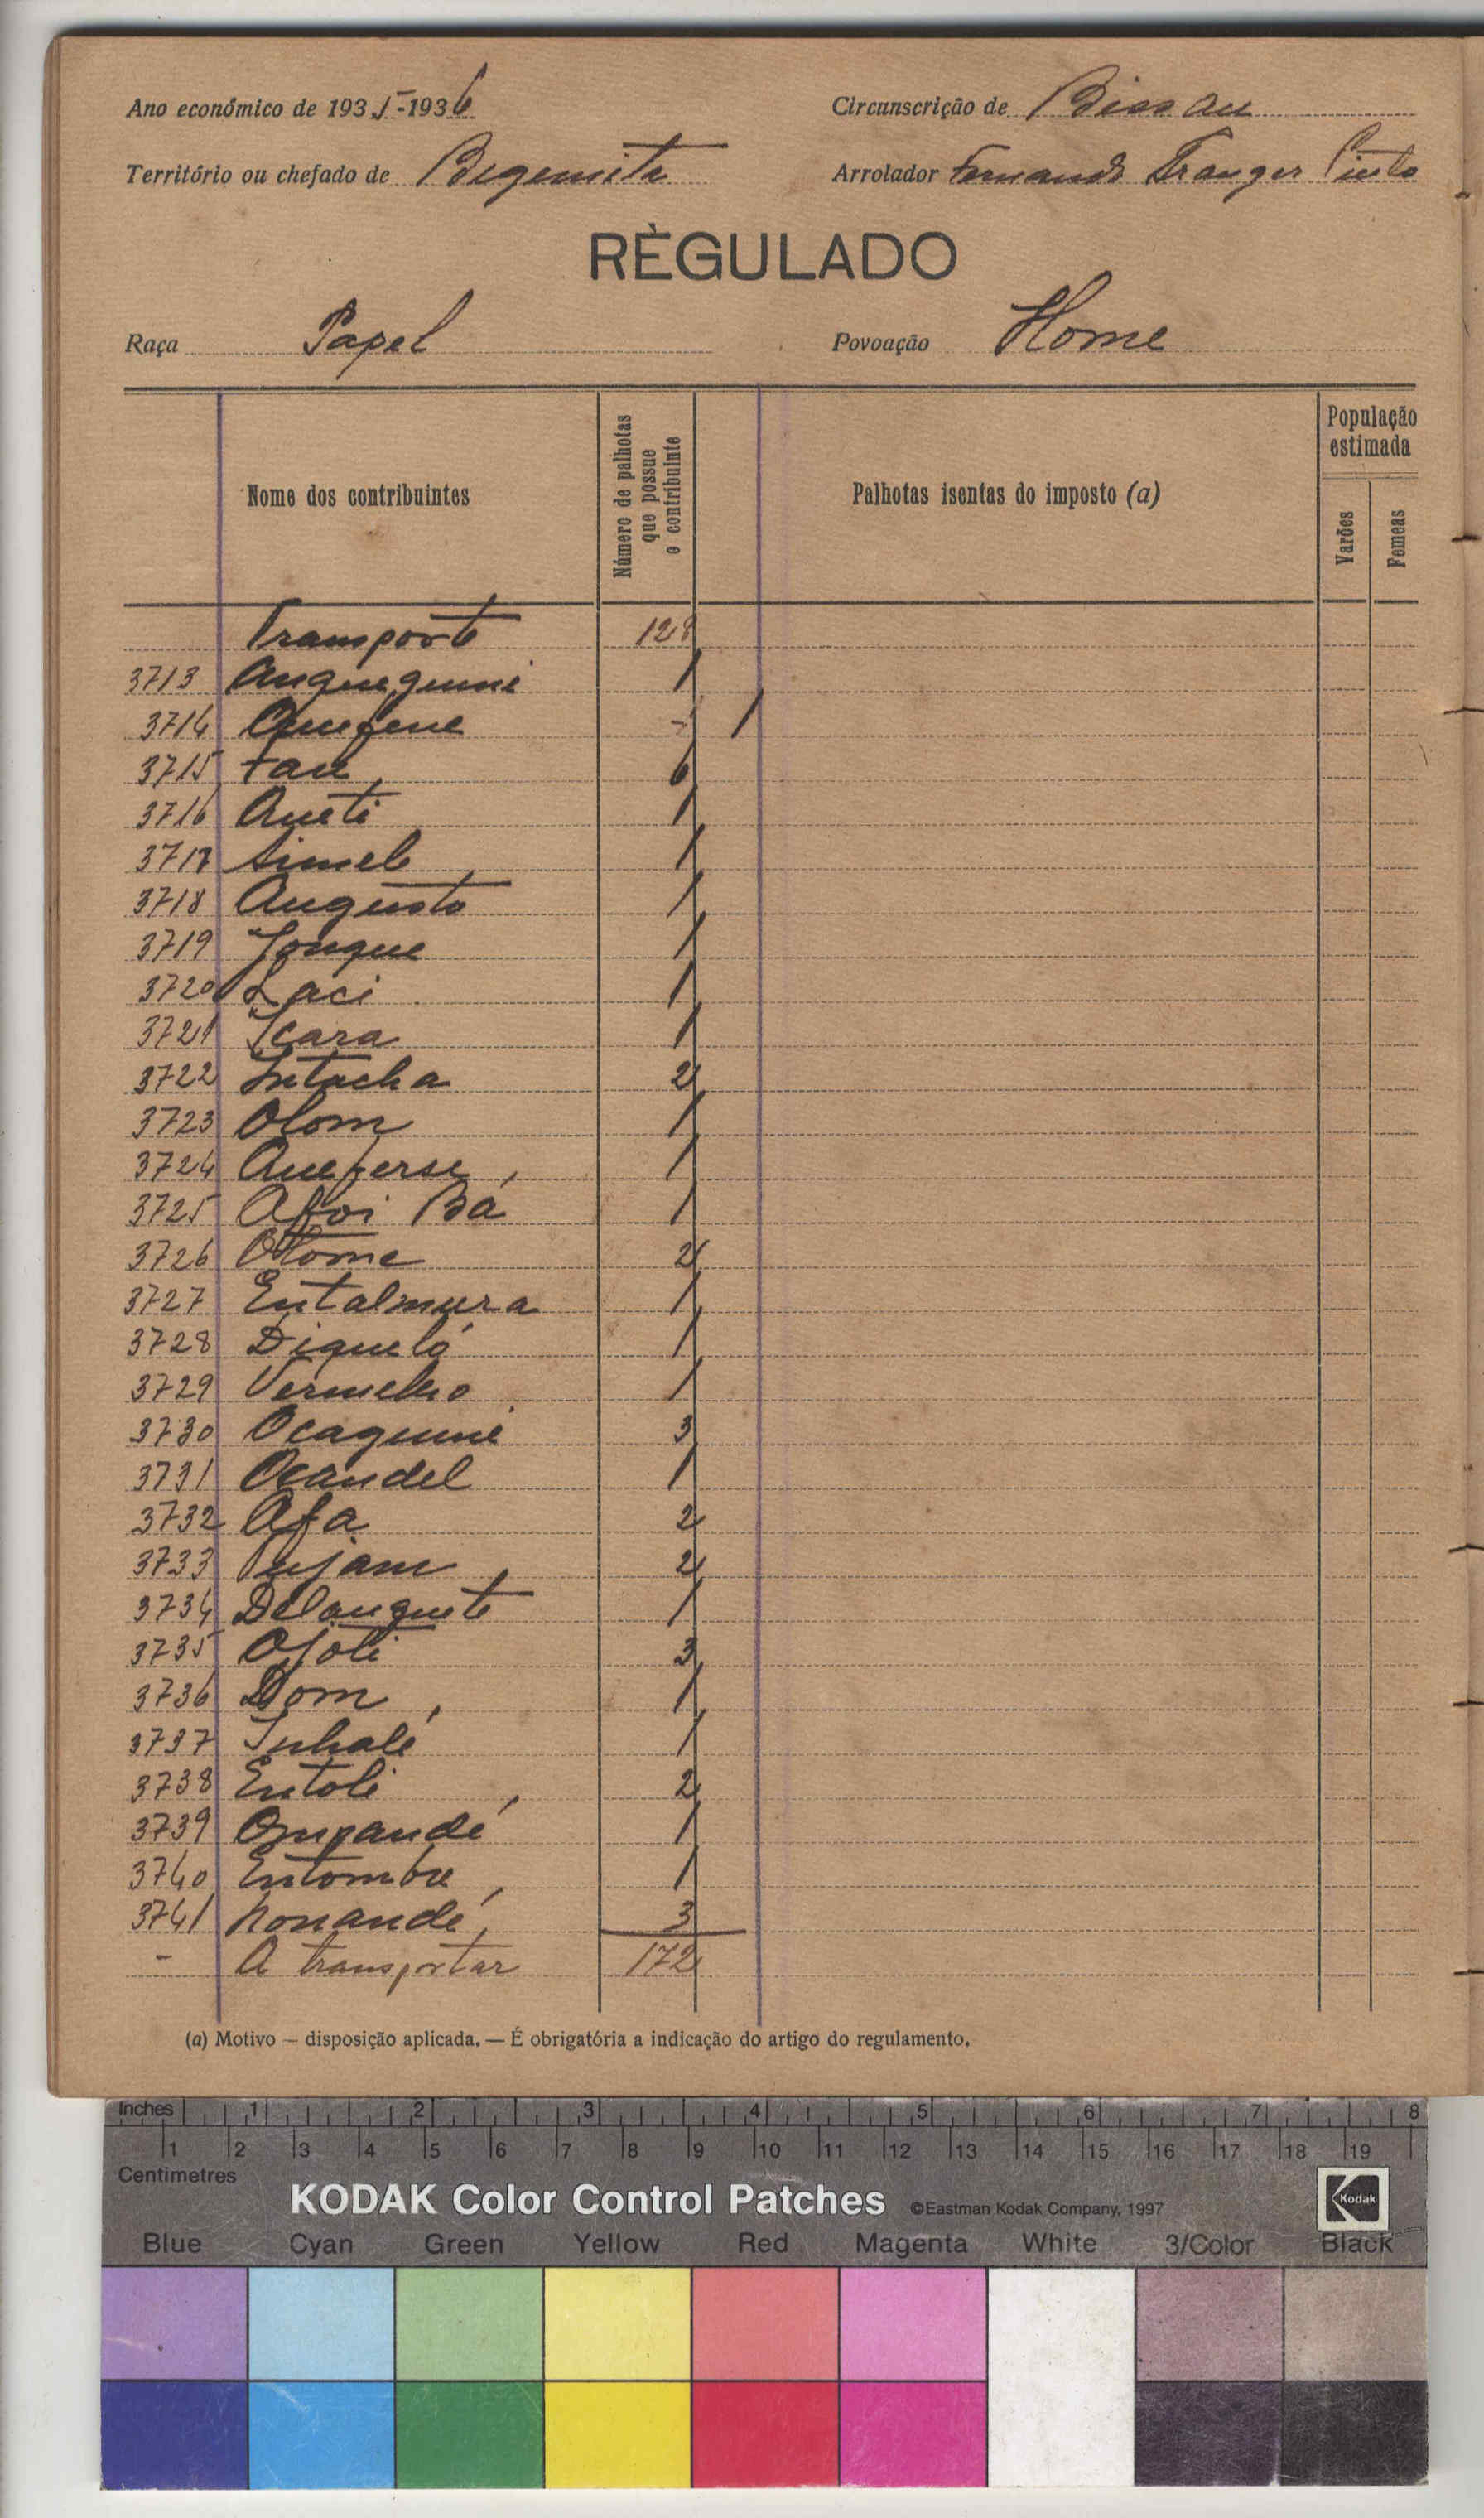 Ano económico de 1935-1936 Circunscrição de Bissau
Território ou chefado de Bigemita Arrolador Fernando Franger Pinto
RÈGULADO
Raça Papel Povoação Home
Nome dos contribuintes
Número de palhotas
que possue
o contribuinte
Palhotas isentas do imposto (a)
População
estimada
Varões
Femeas
Transporte 128
3713 1
3714 - 1
3715 6
3716 Aneti 1
3717 1
3718 Augusto 1
3719 Jonque 1
3720 Laci 1
3721 Icara 1
3722 Intacha 2
3723 Olom 1
3724 1
3725 Afoi Bá 1
3726 Olome 2
3727 Entalmura 1
3728 Diqueló 1
3729 Vermelho 1
3730 3
3731 Ocandel 1
3732 Afa 2
3733 2
3734 Delanguete 1
3735 Ojoti 3
3736 Dom 1
3737 Inhalé 1
3738 Entoli 2
3739 Ompandé 1
3740 Entombre 1
3741 Nonandé 3
- A transportar 172
(a) Motivo — disposição aplicada. — É obrigatória a indicação do artigo do regulamento.
Inches 1 2 3 4 5 6 7 8
1 2 3 4 5 6 7 8 9 10 11 12 13 14 15 16 17 18 19
Centimetres
KODAK Color Control Patches ©Eastman Kodak Company, 1997 Kodak
Blue Cyan Green Yellow Red Magenta White 3/Color Black